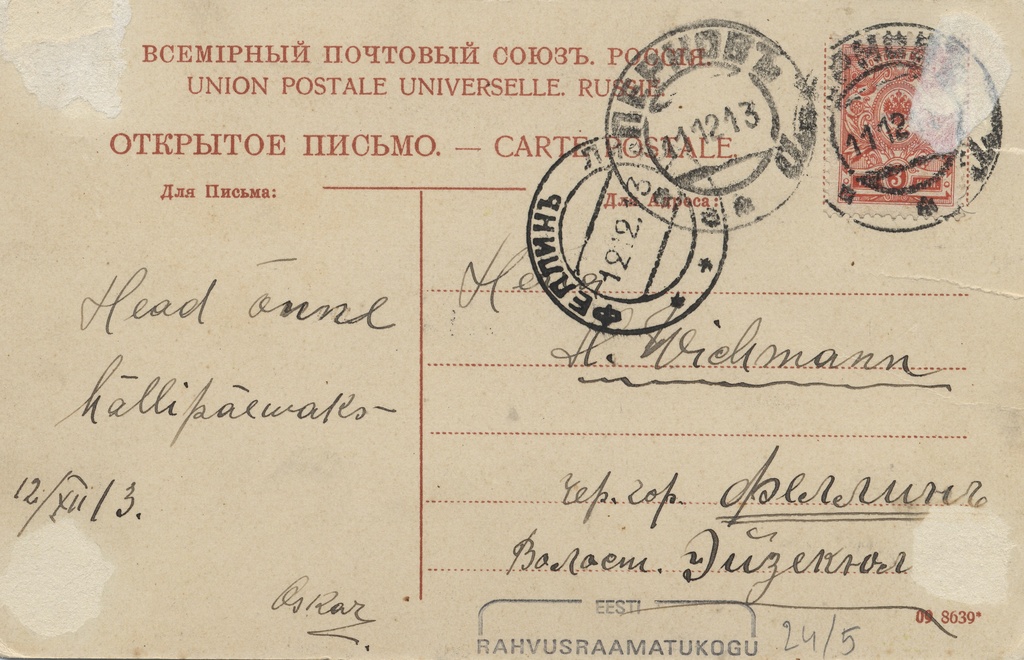 ВСЕМІРНЫЙ ПОЧТОВЫЙ СОЮЗЪ. РОССІЯ.
UNION POSTALE UNIVERSELLE. RUSSIE.
ОТКРЫТОЕ ПИСЬМО. — CARTE POSTALE
Для Письма:
Для Адреса:
11 12 13
11 12
3
ФЕЛЛИНЪ
12.12.13
Head õnne
hällipäewaks-
12/XII 13.
Oskar
Herra
H. Wichmann
чер. гор. Феллинъ
Волост. Эйзекюл
09 8639*
EESTI
RAHVUSRAAMATUKOGU
24/5